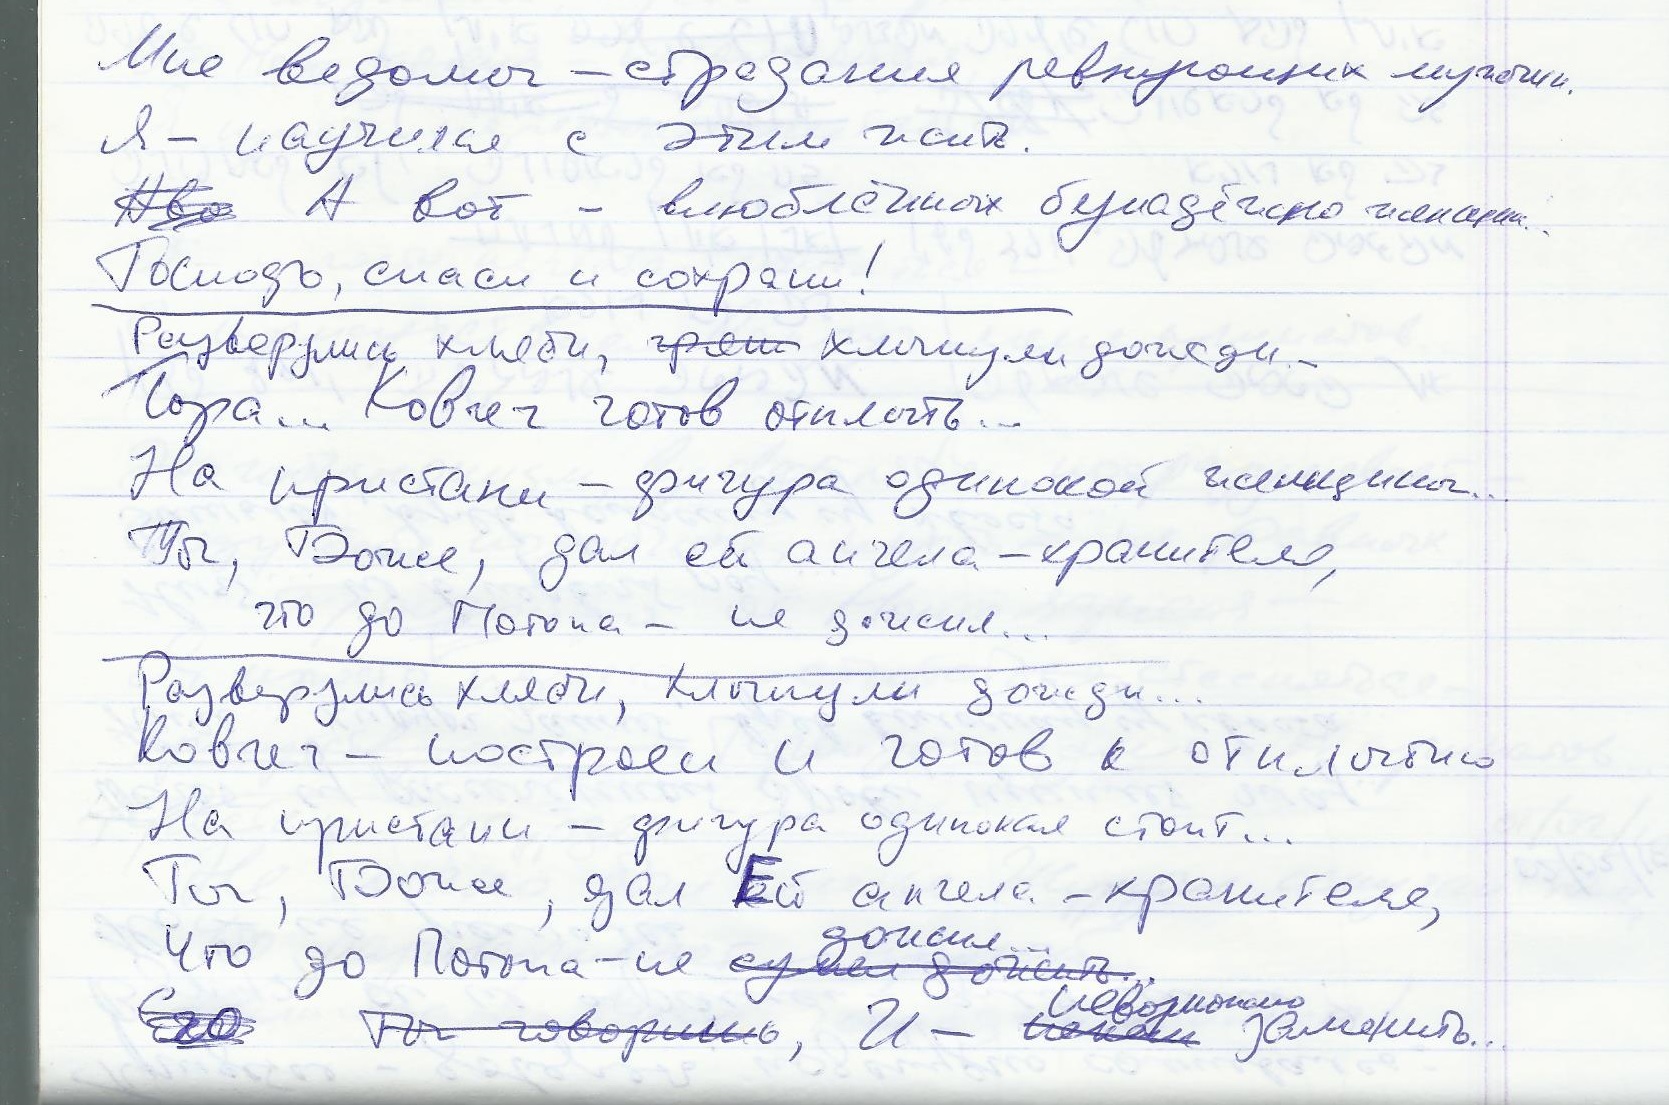 Мне ведомы – страдания ревнующих мужчин.
Я – научился с этим жить.
А вот – влюблённых безнадёжно женщин...
Господь, спаси и сохрани!
Разверзлись хляби, хлынули дожди...
Пора... Ковчег готов отплыть...
На пристани – фигура одинокой женщины...
Ты, Боже, дал ей ангела-хранителя,
что до Потопа – не дожил...
Разверзлись хляби, хлынули дожди...
Ковчег – построен и готов к отплытию
На пристани – фигура одинокая стоит...
Ты, Боже, дал Ей ангела-хранителя,
дожил...
Что до Потопа – не сумел дожить...
невозможно
Его Ты говоришь, И – заменить...